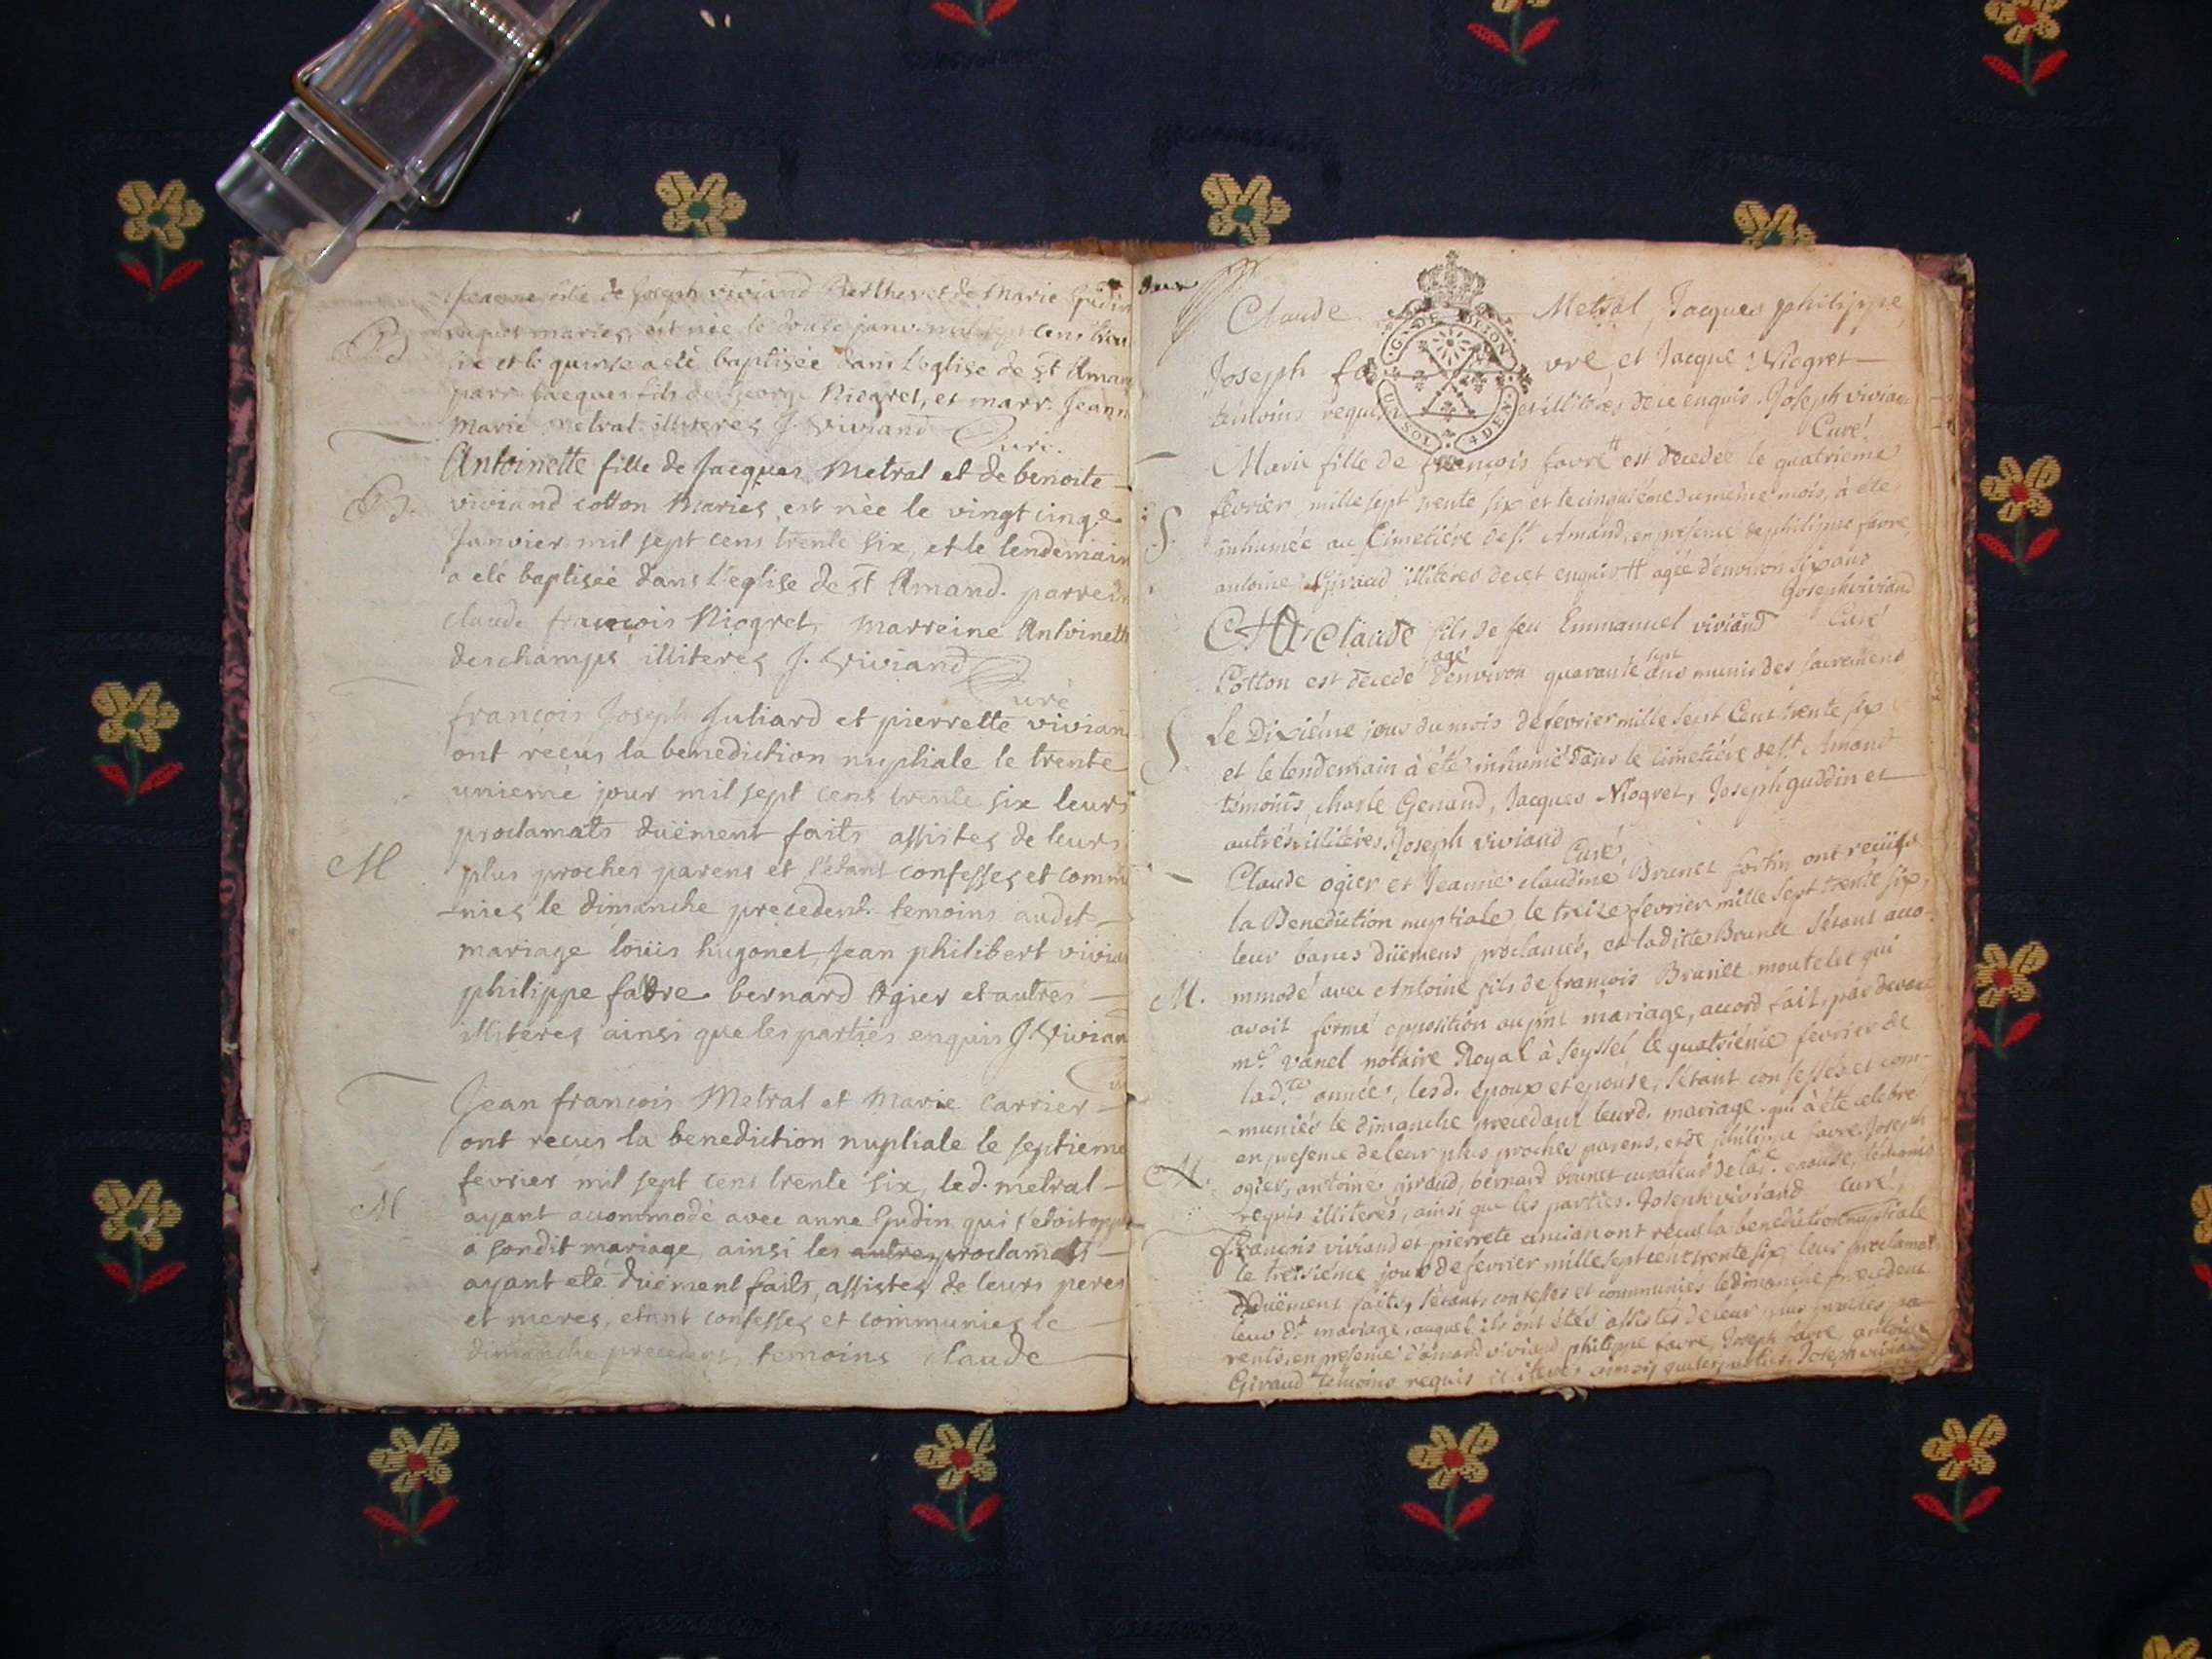 Jeanne fille de Joseph viviand Berthet et de Marie Gudin
maries, est née le janv. mil sept cens tren
six et le quinze a eté baptisée dans l'eglise de st Aman
parr. Jacques fils de George Niogret, et marr. Jeann
marie metral illiteres J. Viviand Curé.
B.
Antoinette fille de Jacques Metral et de benoite
viviand cotton Mariés est née le vingt cinqe
Janvier mil sept cens trente six, et le lendemain
a eté baptisée dans l'eglise de st Amand. parrein
claude françois Niogret, marreine Antoinette
deschamps illiteres J. Viviand
Curé
B.
françois Joseph Juliard et pierrette vivian
ont reçus la benediction nuptiale le trente
unieme jour mil sept cens trente six leurs
proclamats düement faits assistes de leurs
M
plus proches parens et s'étant confesses et commu
-nies le dimanche precedent. temoins audit
mariage loüis hugonet, Jean philibert vivia
philippe favre bernard Ogier et autres
illiteres ainsi que les parties enquis J. Vivian
Jean françois Metral et Marie carrier
ont recus la benediction nuptiale le septieme
fevrier mil sept cens trente six, led. metral
M
ayant accommodé avec anne Gudin qui s'etoit oppo
a sondit mariage, ainsi les autres proclamats
ayant eté düement faits, assistes de leurs peres
et meres, etant confesses et communies le
dimanche precedent, temoins claude
deux
Claude Metral, Jacques philippe,
Joseph favre, et Jacque Niogret
témoins requis et illiterés de ce enquis. Joseph viviand
Curé.
Marie fille de françois favre # est décedée le quatrieme
fevrier mille sept trente six et le cinquiéme du même mois, à eté
S.
inhumée au Cimetiére de st Amand, en presence de philippe favre,
antoine Giraud illiteres de cet enquis # agée d'environ six ans
Joseph viviand
Curé
Claude fils de feu Emmanuel viviand
Cotton est décedé agé d'environ quarante sept ans munis des sacremens
S.
Le Dixiéme jour du mois de fevrier mille sept Cent trente six
et le lendemain à été inhumé dans le cimetiére de st Amand
témoins, charle Genand, Jacques Niogret, Joseph guddin et
autres illiteres. Joseph viviand Curé.
Claude ogier et Jeanne claudine Brunet fortin ont reçües
la Benediction nuptiale, le treize fevrier mille sept trente six,
leur bancs düemens proclamés, et laditte Brunet s'étant acco-
M.
mmodé avec Antoine fils de françois Brunet moutelet qui
avoit formé opposition au pnt mariage, accord fait par devant
me. vanel notaire Royal à seyssel le quatriéme fevrier de
lad.te année, lesd. époux et épouse, s'étant confessés et com-
-muniés le dimanche precedant leurd. mariage. qui à été celebré
en presence de leur plus proches parens, et de philippe favre Joseph
M.
ogier, antoine giraud, bernard brunet curateur de lad. epouse, témoins
requis illiterés, ainsi que les parties. Joseph viviand curé,
françois viviand et pierrete ancian ont reçus la benediction nuptiale
le treisiéme jour de fevrier mille sept cent trente six, leur proclamat
düement faits, s'étants confesses et communiés le dimanche precedent
leur dt mariage, auquel ils ont étés assistés de leur plus proches pa-
rents, en presence d'amand viviand philippe favre, Joseph favre antoine
Giraud témoins requis illiterés ainsy que les parties. Joseph viviand